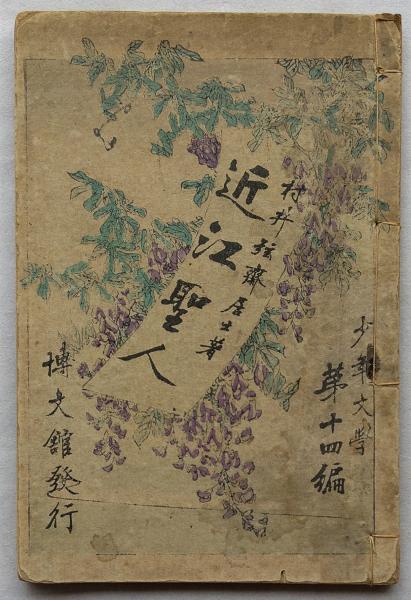 少年文学
第十四編
村井弦齋居士著
近江聖人
博文館發行